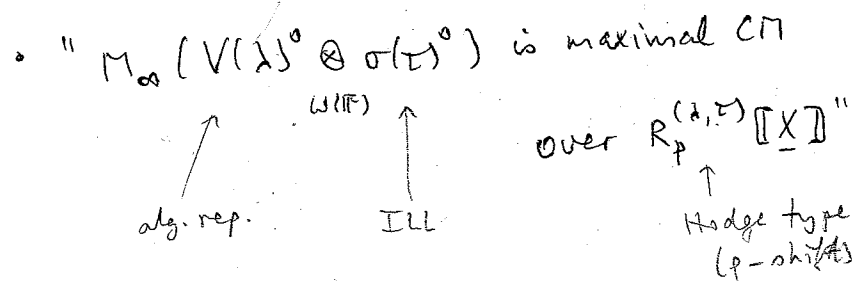 • " M_∞ ( V(λ)° ⊗ σ(τ)° ) is maximal CM
W(𝔽)
over R_p^{(λ,τ)} ⟦X⟧ "
alg. rep. ILL Hodge type
(ρ-shift)